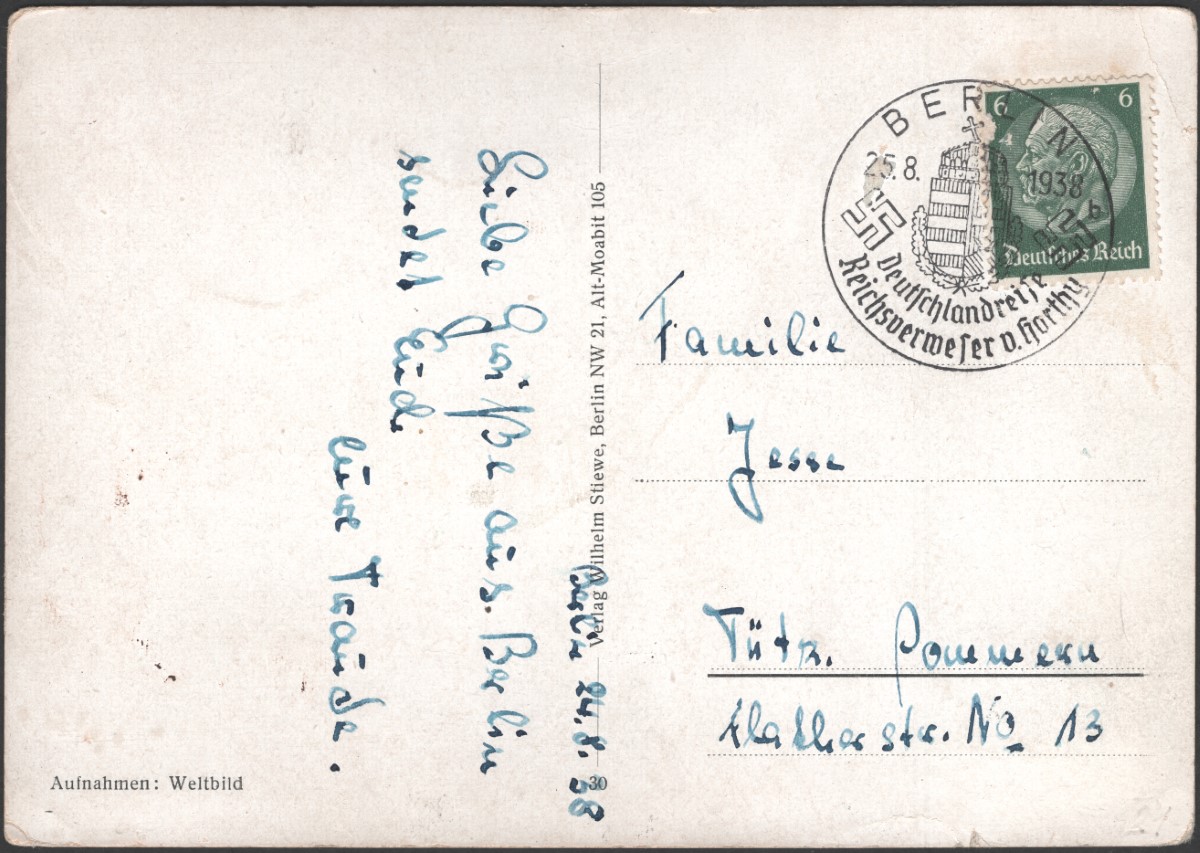 Berlin 24.8.38
Liebe Grüße aus. Berlin
sendet Euch
eure Traude.
Verlag Wilhelm Stiewe, Berlin NW 21, Alt-Moabit 105
30
Aufnahmen: Weltbild
BERLIN
25.8. 1938
b
Deutschlandreise
Reichsverweser v. Horthy
6 6
Deutsches Reich
Familie
Jesse
Tütz. Pommern
str. No 13